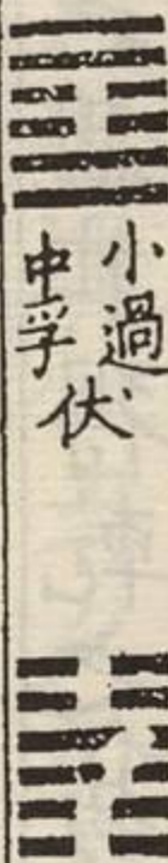 小過
中孚
伏